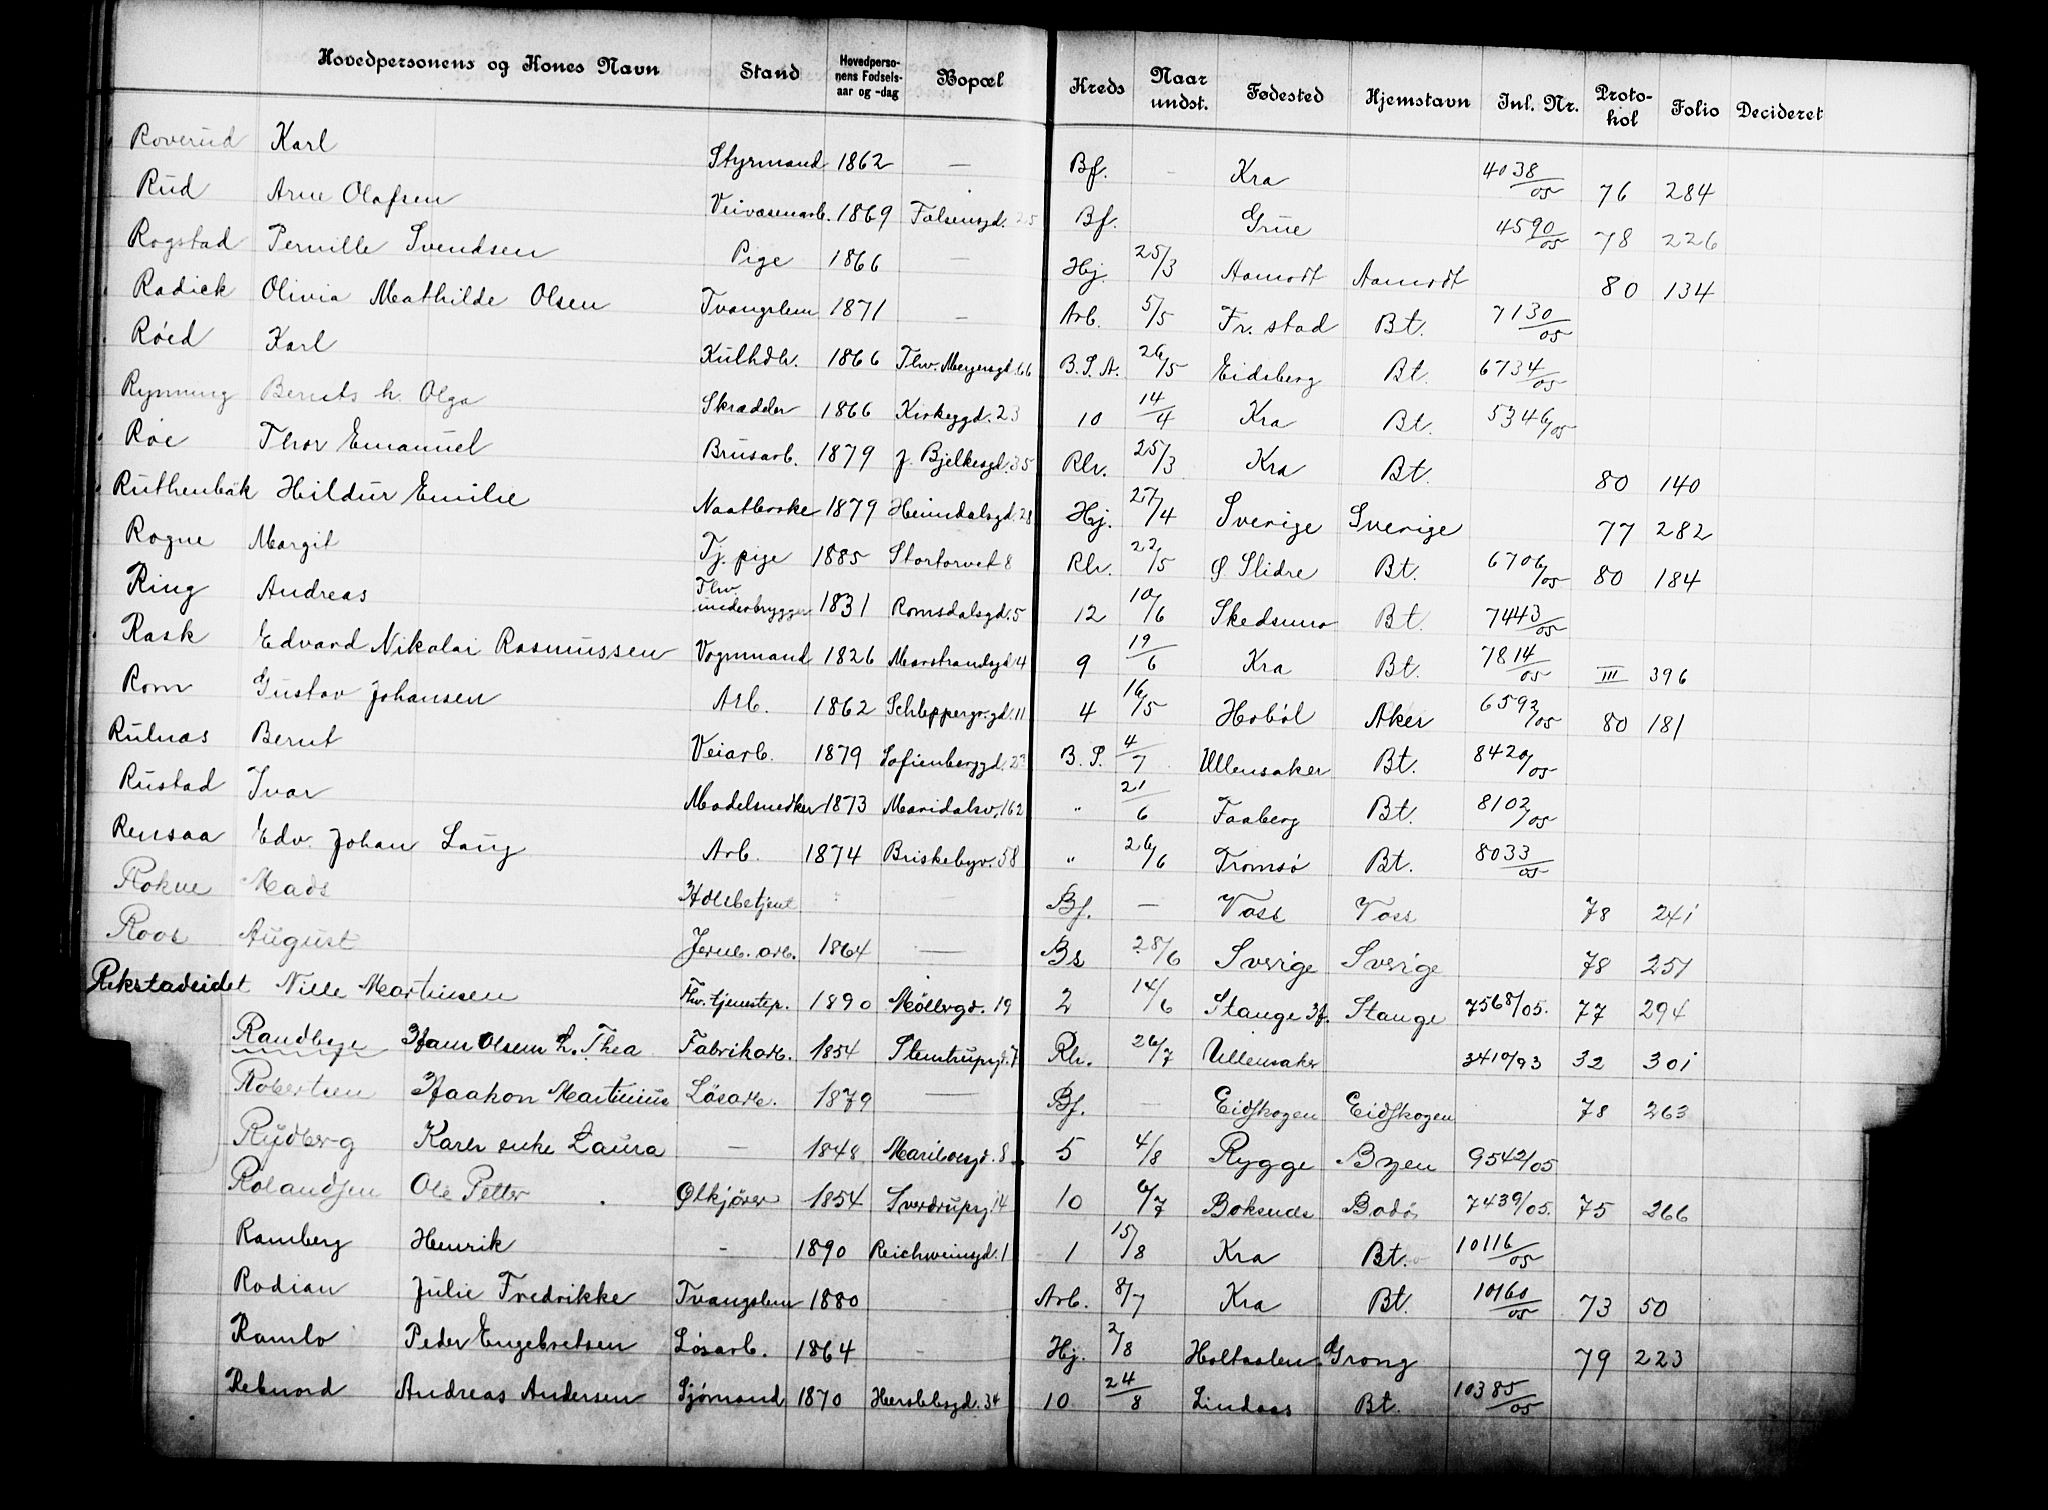 Hovedpersonens og Kones Navn | Stand | Hovedperso-nens Fødsels-aar og -dag | Bopæl | Kreds | Naar undst. | Fødested | Hjemstavn | Inl. Nr. | Proto-kol | Folio | Decideret
Roverud Karl | Styrmand | 1862 | — | Bf. | - | Kra | | 4038/05 | 76 | 284
Rud Arne Olafsen | Veivæsenarb. | 1869 | Falsensgd. 25 | Bf. | | Grue | | 4590/05 | 78 | 226
Rogstad Pernille Svendsen | Pige | 1866 | — | Hj. | 25/3 | Aamodt | Aamodt | | 80 | 134
Radick Olivia Mathilde Olsen | Tvangslem | 1871 | — | Arb. | 5/5 | Fr. stad | Bt. | 7130/05
Røed Karl | Kulhdlr. | 1866 | Thv. Meyersgd. 66 | B.S.A. | 26/5 | Eidsberg | Bt. | 6734/05
Rynning Bernts h. Olga | Skrædder | 1866 | Kirkeggd. 23 | 10 | 14/4 | Kra | Bt. | 5346/05
Røe Thor Emanuel | Brusarb. | 1879 | J. Bjelkesgd. 35 | Rh. | 25/3 | Kra | Bt. | | 80 | 140
Ruthenbäk Hildur Emilie | | 1879 | Heimdalsgd. 28 | Hj. | 27/4 | Sverige | Sverige | | 77 | 282
Rogne Margit | Tj. pige | 1885 | Stortorvet 8 | Rh. | 22/5 | Ø Slidre | Bt. | 6706/05 | 80 | 184
Ring Andreas | Fhv. underbrygger | 1831 | Romsdalsgd. 5 | 12 | 10/6 | Skedsmo | Bt. | 7443/05
Rask Edvard Nikolai Rasmussen | Vognmand | 1826 | Marstrandsgd. 4 | 9 | 19/6 | Kra | Bt. | 7814/05 | III | 396
Rom Gustav Johansen | Arb. | 1862 | Schleppegr.gd. 11 | 4 | 16/5 | Hobøl | Aker | 6592/05 | 80 | 181
Rulnæs Bernt | Veiarb. | 1879 | Sofienberggd. | B.S. | 4/7 | Ullensaker | Bt. | 8420/05
Rustad Ivar | Modelsnedker | 1873 | Maridalsv. 162 | " | 21/6 | Faaberg | Bt. | 8102/05
Rensaa Edv. Johan Lang | Arb. | 1874 | Briskebyv. 58 | " | 26/6 | Tromsø | Bt. | 8033/05
Rokne Mads | Hdlsbetjent | | | Bf. | — | Voss | Voss | | 78 | 241
Roos August | Jernb. arb. | 1864 | — | Bs | 28/6 | Sverige | Sverige | | 78 | 251
Rekstadeidet Nille Martinsen | Fhv. tjenestep. | 1890 | Møllergd. 19 | 2 | 14/6 | Stange Hf. | Stange | 7568/05. | 77 | 294
Randbye Hans Olsens h. Thea | Fabrikarb. | 1854 | Stenstrupsgd. 7 | Rh. | 26/7 | Ullensaker | | 3410/93 | 32 | 301
Robertsen Haakon Martinius | Løsarb. | 1879 | — | Bf. | — | Eidskogen | Eidskogen | | 78 | 263
Rydberg Karls enke Laura | — | 1848 | Mariboesgd. 8 | 5 | 4/8 | Rygge | Byen | 9542/05
Rolandsen Ole Petter | Ølkjører | 1854 | Sverdrupsg. 14 | 10 | 6/7 | | Bodø | 7439/05. | 75 | 266
Ramberg Henrik | - | 1890 | Reichweinsgd. 1 | 1 | 15/8 | Kra | Bt. | 10116/05
Rodian Julie Fredrikke | Tvangslem | 1880 | - | Arb. | 8/7 | Kra | Bt. | 10160/05 | 73 | 50
Ramlo Peder Engebretsen | Løsarb. | 1864 | - | Hj. | 2/8 | Holtaalen | Grong | | 79 | 223
Reknord Andreas Andersen | Sjømand | 1870 | Herslebsgd. 34 | 10 | 24/8 | Lindaas | Bt. | 10385/05